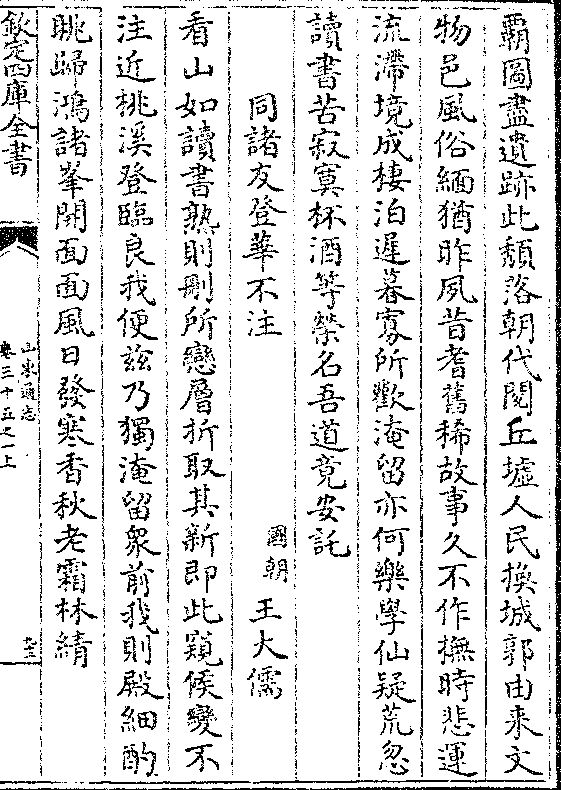 霸圖盡遺跡此頽落朝代閱丘墟人民換城郭由来文
物邑風俗緬猶昨夙昔耆舊稀故事久不作撫時悲運
流滯境成棲泊遲暮寡所歡淹留亦何樂學仙疑荒忽
讀書苦寂寞杯酒等榮名吾道竟安託
同諸友登華不注
國朝 王大儒
看山如讀書熟則剛所戀層折取其新即此窺候變不
注近桃溪登臨良我便兹乃獨淹留衆前我則殿細酌
眺歸鴻諸峯開面面風日發寒香秋老霜林綪
欽定四庫全書
山東通志
卷三十五之一上